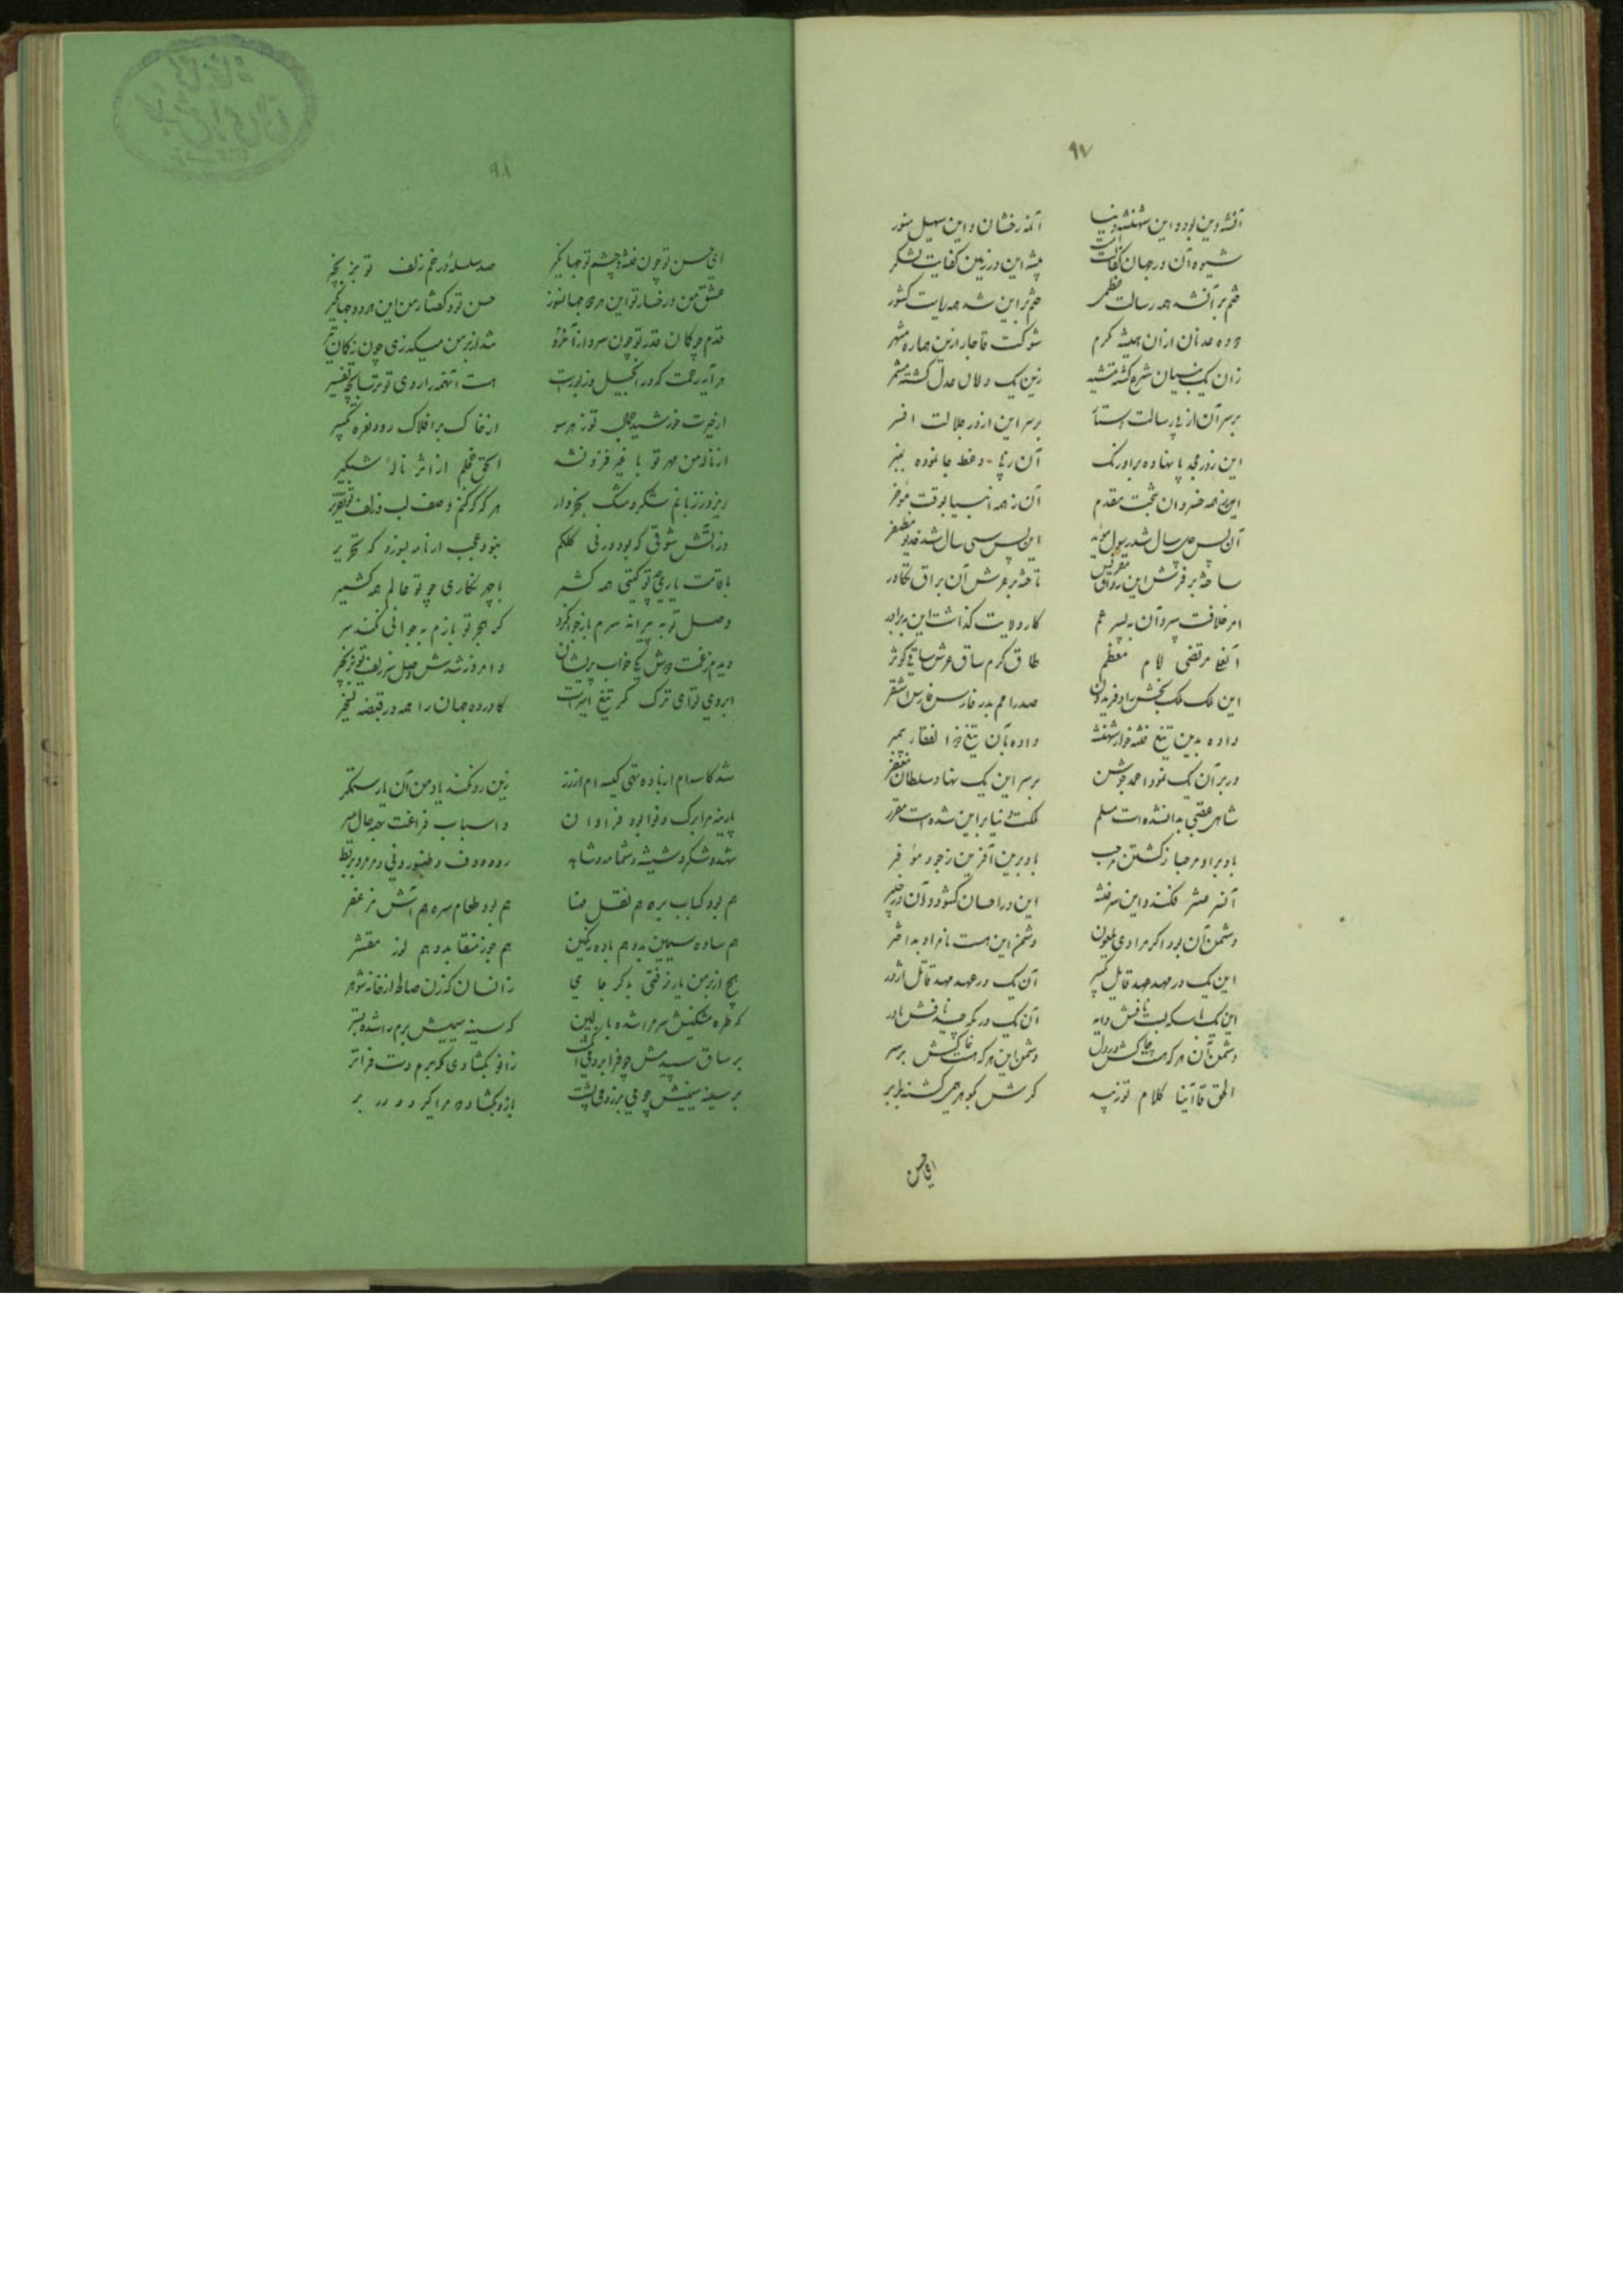 ٩٧
آنشه دین بود و این شهنشه دنیا آنمه رخشان و این سهیل منور
شیوه آن در جهان کفالت امت پیشه این در زمین کفایت لشکر
ختم بر آنشه همه رسالت عظمی ختم بر این شد همه ریاست کشور
دوده عدنان از آن همیشه مکرم شوکت قاجار ازین هماره مشهر
زان یک بنیان شرع گشته مشید زین یک دامان عدل گشته مشمر
بر سر آن از پر رسالت دستار بر سر این از در جلالت افسر
این ز در مجد پا نهاده بر اورنگ آن ز پی وعظ جا نموده بمنبر
این ز همه خسروان ببخت مقدم آن ز همه انبیا بوقت مؤخر
آن پس چل سال شد رسول مؤید این پس سی سال شد خدیو مظفر
ساخته بر فرش این رواق مقرنس تاخته بر عرش آن براق تکاور
امر خلافت سپرد آن به پسر عم کار ولایت گذاشت این به برادر
آن علی مرتضی امام معظم طاق کرم ساق عرش ساقی کوثر
این ملک ملک بخش راد فریدون صدر امم بدر فارس فارس اشقر
داده بدین تیغ فتنه خوار شهنشه داده بآن تیغ ذوالفقار پیمبر
در بر آن یک نمود احمد جوشن بر سر این یک نهاد سلطان مغفر
شاهی عقبی بدان شده است مسلم ملکت دنیا بر این شده است مقرر
باد بر او مرحبا ز کشتن مرحب باد برین آفرین ز جود موفر
آن سر عنتر فکند و این سر فتنه این در احسان گشود و آن در خیبر
دشمن آن بود اگر مرادی ملعون دشمن این هست نامراد بد اختر
این یک در مهد عهد قاتل گمپیر آن یک در عهد مهد قاتل اژدر
این یک را سکه بست نافش دایه آن یک در مکه چید نافش مادر
دشمن آن هر که هست چاکش در دل دشمن این هر که هست خاکش بر سر
الحق قاآنیا کلام تو زیبد کرش بگوهر همی کشند برابر
ای حسن
٩٨
ای حسن تو چون فتنه چشم تو جهانگیر صد سلسله در خم زلف تو بزنجیر
عشق من و رخسار تو این هر دو جهانسوز حسن تو و گفتار من این هر دو جهانگیر
قدم چو کمان قد تو چون سرو از آنرو تند از بر من میگذری چون ز کمان تیر
هر آیه رحمت که در انجیل و زبور است هست آنهمه را روی تو بر تابچه تفسیر
از غیرت خورشید جمال تو ز هر سو از خاک بر افلاک رود نعره تکبیر
از ناله من مهر تو با غیر فزون شد الحق خجلم از اثر ناله شبگیر
ریزد ز زبانم شکر و مشک بخروار هر گه که کنم وصف لب و زلف تو تقریر
وز آتش شوقی که بود در نی کلکم نبود عجب ار نامه بسوزد گه تحریر
با قامت یاری چو تو گیتی همه کشمر با چهر نگاری چو تو عالم همه کشمیر
وصل تو به پیرانه سرم باز جوان کرد گر هجر تو بازم به جوانی نکند پیر
دیدم ز غمت دوش یکی خواب پریشان و امروز شدش وصل سر زلف تو تعبیر
ابروی تو ای ترک مگر تیغ امیر است کاورده جهان را همه در قبضه تسخیر
شد کاسه ام از باده تهی کیسه ام از زر زین رو نکند یاد من آن یار ستمگر
پارینه مرا برگ و نوا بود فراوان و اسباب فراغت همه جا میسر
شهد و شکر و شیشه و شمامه و شاهد رود و دف و طنبور و نی و مزمر و بربط
هم بود کباب بره هم نقل مهنا هم بود طعام سره هم آش مزعفر
هم ساده سیمین بد و هم باده رنگین هم جوز منقا بد و هم لوز مقشر
هیچ از بر من یار نرفتی بدگر جای زانسان که زن صالحه از خانه شوهر
که طره مشکینش سرم را شده بالین که سینه سیمینش برم را شده بستر
بر ساق سپیدش چو فرا بردمی انگشت زانو بگشادی که برم دست فراتر
بر سینه سیمینش چو می بر زدمی پشت بازو بگشاده مرا گیرد در بر